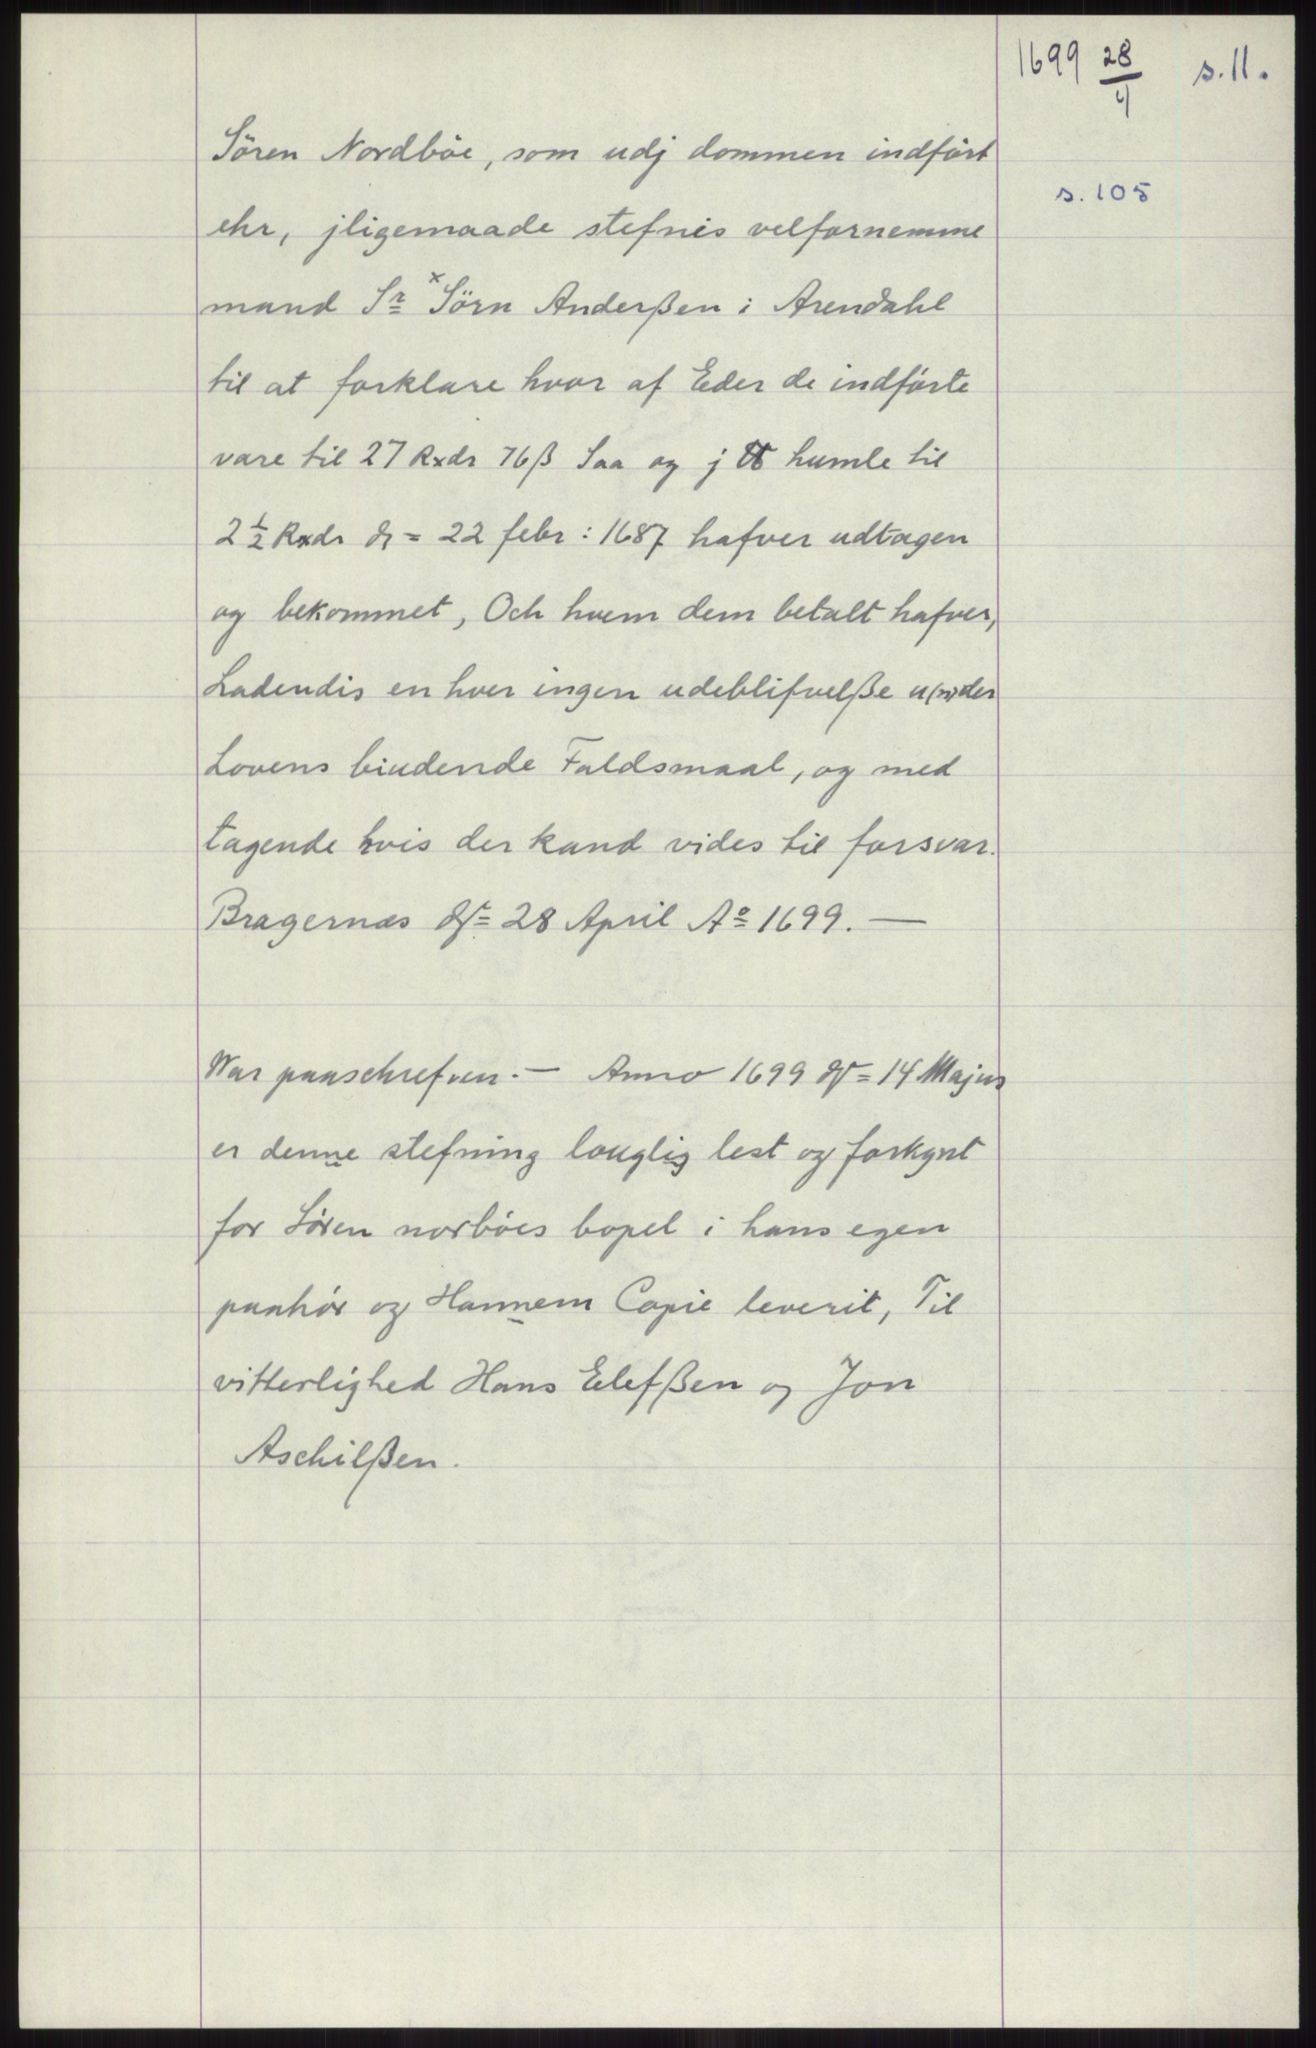 1699 28/4 s.11.
s. 105
Sören Nordböe, som udj dommen indfört
ehr, jligemaade stefnes velfornemme
mand Sr Sörn Anderßen i Arendahl
til at forklare hvor af Eder de indförte
vare til 27 Rxdr 76 ß Saa og j ℔ humle til
2 1/2 Rxdr d = 22 febr: 1687 hafver udtagen
og bekommet, Och hvem dem betalt hafver,
Ladendis en hver ingen udeblifvelße u(n)der
Lovens biudende Faldsmaal, og med
tagende hvis der kand vides til forsvar.
Bragernæs d = 28 April Ao 1699. —
War paaschrefven. — Anno 1699 d = 14 Majus
er denne stefning louglig lest og forkynt
for Sören norböes bopel i hans egen
paahör og Hannem Copie leverit, Til
vitterlighed Hans Elefßen og Jon
Aschilßen.